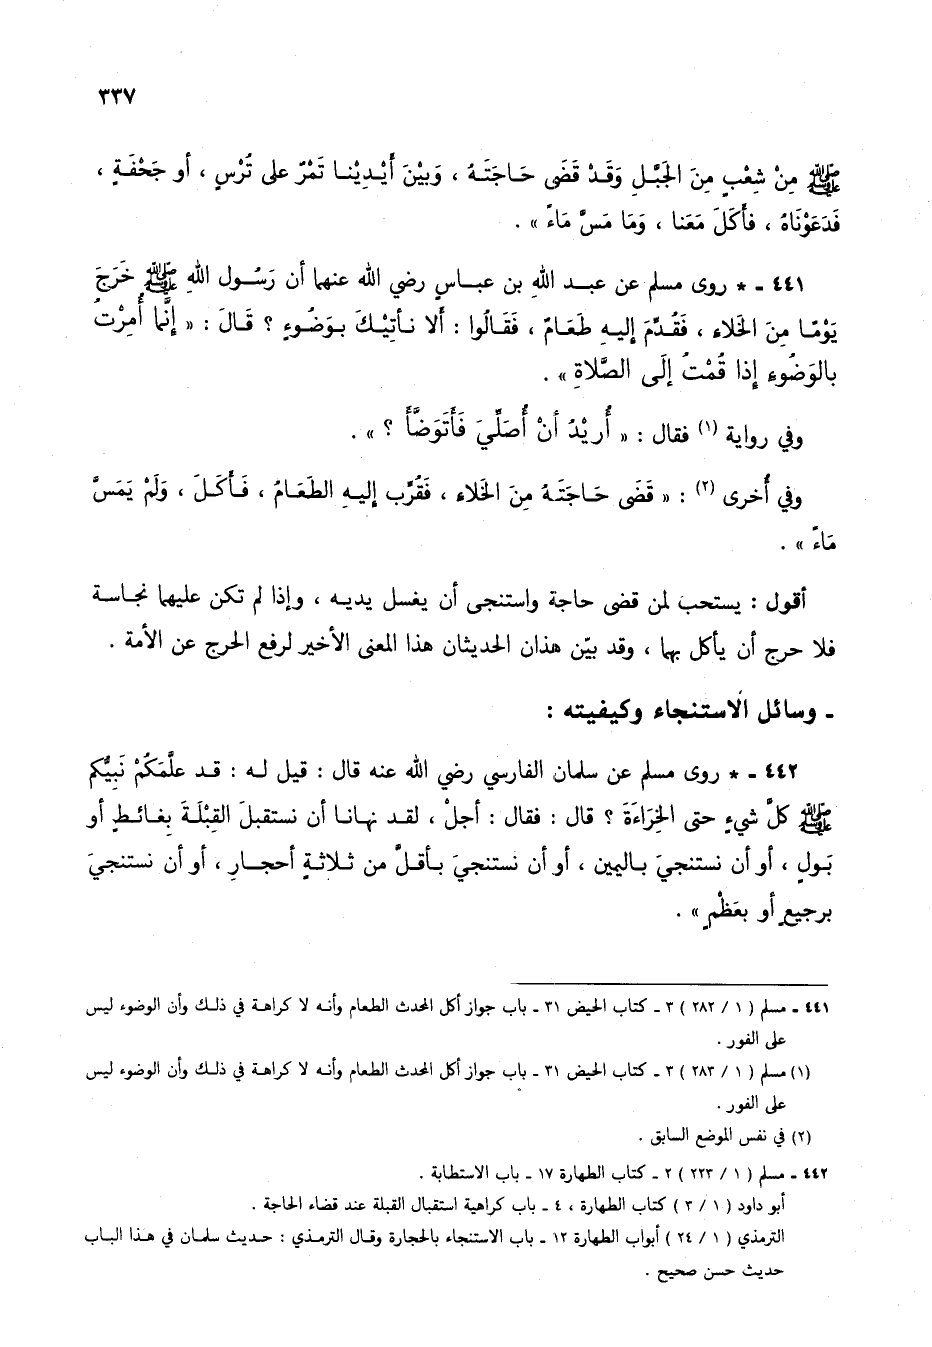 ٣٣٧
ﷺ مِنْ شِعْبٍ مِنَ الجَبَلِ وَقَدْ قَضَى حَاجَتَهُ ، وَبَيْنَ أَيْدِيْنا تَمْرٌ على تُرْسٍ ، أو جَحْفَةٍ ،
فَدَعَوْنَاهُ ، فأَكَلَ مَعَنا ، وَمَا مَسَّ مَاءً » .
٤٤١ ـ * روى مسلم عن عبد اللهِ بن عباسٍ رضي الله عنهما أن رَسُول اللهِ ﷺ خَرَجَ
يَوْمًا مِنَ الخَلاءِ ، فَقُدِّمَ إليهِ طَعَامٌ ، فَقَالُوا : أَلا نَأتِيْكَ بِوَضُوءٍ ؟ قَالَ : « إنَّمَا أُمِرْتُ
بالوَضُوءِ إذا قُمْتُ إلَى الصَّلاةِ » .
وفي رواية (١) فقال : « أُرِيْدُ أنْ أُصَلِّيَ فَأَتَوَضَّأَ ؟ » .
وفي أُخرى (٢) : « قَضَى حَاجَتَهُ مِنَ الخَلاءِ ، فَقُرِّب إليهِ الطَعَامُ ، فَأَكَلَ ، وَلَمْ يَمَسَّ
مَاءً » .
أقول : يستحب لمن قضى حاجة واستنجى أن يغسل يديه ، وإذا لم تكن عليهما نجاسة
فلا حرج أن يأكل بهما ، وقد بيّن هذان الحديثان هذا المعنى الأخير لرفع الحرج عن الأمة .
ـ وسائل الاستنجاء وكيفيته :
٤٤٢ ـ * روى مسلم عن سلمان الفارسي رضي الله عنه قال : قيل له : قد علَّمَكُمْ نَبِيُّكم
ﷺ كلَّ شيءٍ حتى الخِرَاءَةَ ؟ قال : فقال : أجلْ ، لقد نهانا أن نستقبلَ القِبْلَةَ بِغائطٍ أو
بَولٍ ، أو أن نستنجيَ باليمين ، أو أن نستنجيَ بأقلَّ من ثلاثةِ أحجارٍ ، أو أن نستنجيَ
برجيعٍ أو بعَظْمٍ » .
٤٤١ ـ مسلم ( ١ / ٢٨٢ ) ٣ ـ كتاب الحيض ٣١ ـ باب جواز أكل المحدث الطعام وأنه لا كراهة في ذلك وأن الوضوء ليس
على الفور .
(١) مسلم ( ١ / ٢٨٣ ) ٣ ـ كتاب الحيض ٣١ ـ باب جواز أكل المحدث الطعام وأنه لا كراهة في ذلك وأن الوضوء ليس
على الفور .
(٢) في نفس الموضع السابق .
٤٤٢ ـ مسلم ( ١ / ٢٢٣ ) ٢ ـ كتاب الطهارة ١٧ ـ باب الاستطابة .
أبو داود ( ١ / ٣ ) كتاب الطهارة ، ٤ ـ باب كراهية استقبال القبلة عند قضاء الحاجة .
الترمذي ( ١ / ٢٤ ) أبواب الطهارة ١٢ ـ باب الاستنجاء بالحجارة وقال الترمذي : حديث سلمان في هذا الباب
حديث حسن صحيح .